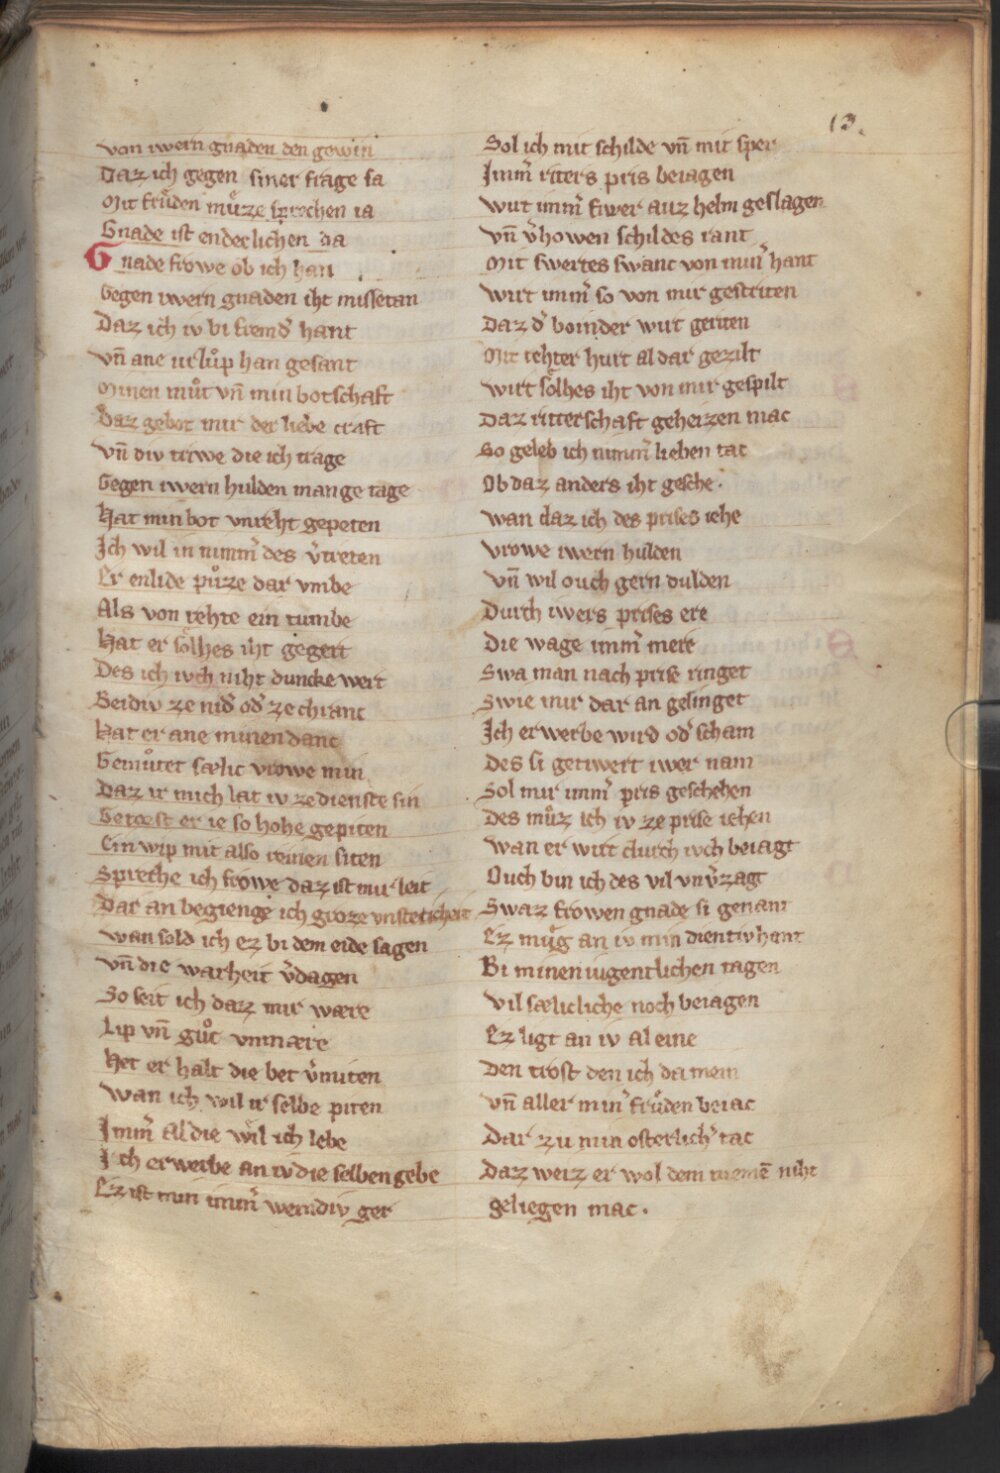 13.
von iwern gnaden den gewin
Daz ich gegen siner frage sa
Mit frͤuden mͤuze sprechen ia
Gnade ist enderlichen da
Gnade frowe ob ich han
Gegen iwern gnaden iht missetan
Daz ich iv bi fremd᷑ hant
Vn̄ ane urlͦup han gesant
Minen mͦut vn̄ min botschaft
Daz gebot mir der liebe craft
Vn̄ div triwe die ich trage
Gegen iwern hulden mange tage
Hat min bot vnreht gepeten
Ich wil in nimm᷑ des v᷑treten
Er enlide pͦuze dar vmbe
Als von rehte ein tumbe
Hat er sͤolhes iht gegert
Des ich ivch niht duncke wert
Beidiv ze nid᷑ od᷑ ze chranc
Hat er ane minen danc
Gemͦutet sælic vrowe min
Daz ir mich lat iv ze dienste sin
Getorst er ie so hohe gepiten
Ein wip mit also reinen siten
Spreche ich frowe daz ist mir leit
Dar an begienge ich groze vnsteticheit
Wan sold ich ez bi dem eide sagen
Vn̄ die warheit v᷑dagen
So seit ich daz mir wære
Lip vn̄ gͦut vnmære
Het er halt die bet v᷑miten
Wan ich wil ir selbe piten
Imm᷑ al die wil ich lebe
Ich erwerbe an iv die selben gebe
Ez ist min imm᷑ werndiv ger
Sol ich mit schilde vn̄ mit sper
Imm᷑ riters pris beiagen
Wirt imm᷑ fiwer auz helm geslagen
Vn̄ v᷑howen schildes rant
Mit swertes swanc von min᷑ hant
Wirt imm᷑ so von mir gestriten
Daz d᷑ boinder wirt geriten
Mit rehter hurt al dar gezilt
Wirt sͤolhes iht von mir gespilt
Daz ritterschaft geheizen mac
So geleb ich nimm᷑ lieben tac
Ob daz anders iht gesche.
Wan daz ich des prises iehe
Vrowe iwern hulden
Vn̄ wil ouch gern dulden
Durch iwers prises ere
Die wage imm᷑ mere
Swa man nach prise ringet
Swie mir dar an gelinget
Ich erwerbe wird od᷑ scham
Des si getiwert iwer nam
Sol mir imm᷑ pris geschehen
Des mͦuz ich iv ze prise iehen
Wan er wirt durch ivch beiagt
Ouch bin ich des vil vnv᷑zagt
Swaz frowen gnade si genant
Ez mͤug an iv min dientiv hant
Bi minen iugentlichen tagen
Vil sælicliche noch beiagen
Ez ligt an iv al eine
Den trost den ich da mein
Vn̄ aller min᷑ frͤuden beiac
Dar zu min osterlich᷑ tac
Daz weiz er wol dem niht
geliegen mac.